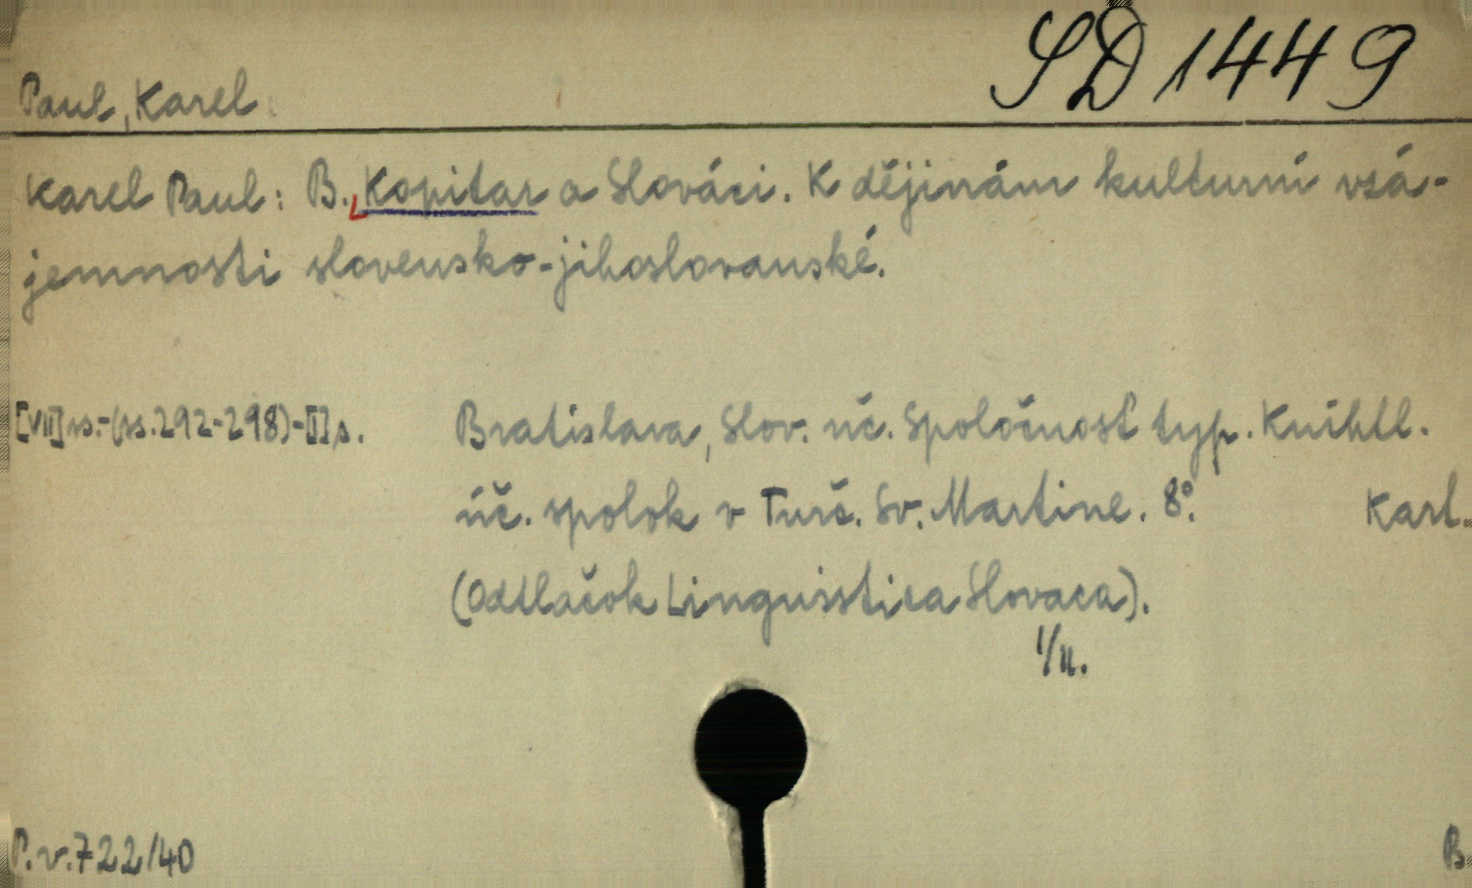 SD 1449
Paul, Karel
Karel Paul: B. Kopitar a Slováci. K dějinám kulturní vzá-
jemnosti slovensko-jihoslovanské.
[VIII] ss.-(ss.292-298)-[I] s. Bratislava, Slov. uč. Spoločnosť typ. Kníhtl.
úč. spolok v Turč. Sv. Martine. 8°. Kart.
(Odtlačok Linguistica Slovaca).
I/II.
P.v.722/40 B.